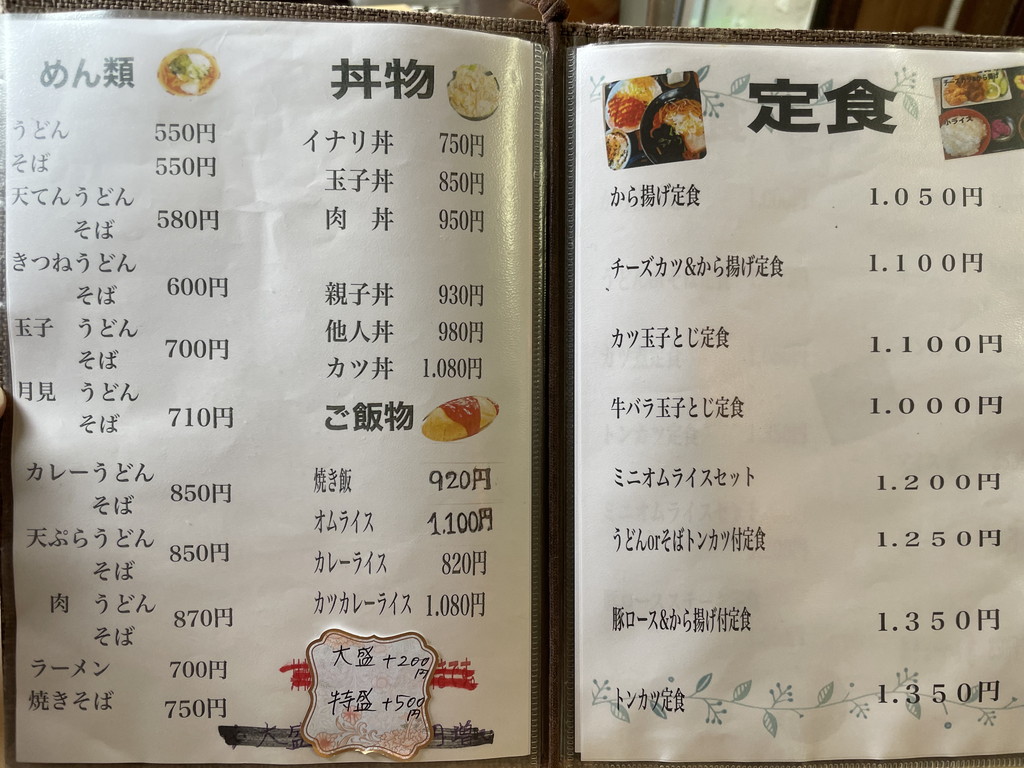 めん類
うどん 550円
そば 550円
天てんうどん
そば 580円
きつねうどん
そば 600円
玉子 うどん
そば 700円
月見 うどん
そば 710円
カレーうどん
そば 850円
天ぷらうどん
そば 850円
肉 うどん
そば 870円
ラーメン 700円
焼きそば 750円
丼物
イナリ丼 750円
玉子丼 850円
肉 丼 950円
親子丼 930円
他人丼 980円
カツ丼 1.080円
ご飯物
焼き飯 920円
オムライス 1.100円
カレーライス 820円
カツカレーライス 1.080円
大盛 +200円
特盛 +500円
大盛
定食
から揚げ定食 1.050円
チーズカツ&から揚げ定食 1.100円
カツ玉子とじ定食 1.100円
牛バラ玉子とじ定食 1.000円
ミニオムライスセット 1.200円
うどんorそばトンカツ付定食 1.250円
豚ロース&から揚げ付定食 1.350円
トンカツ定食 1.350円